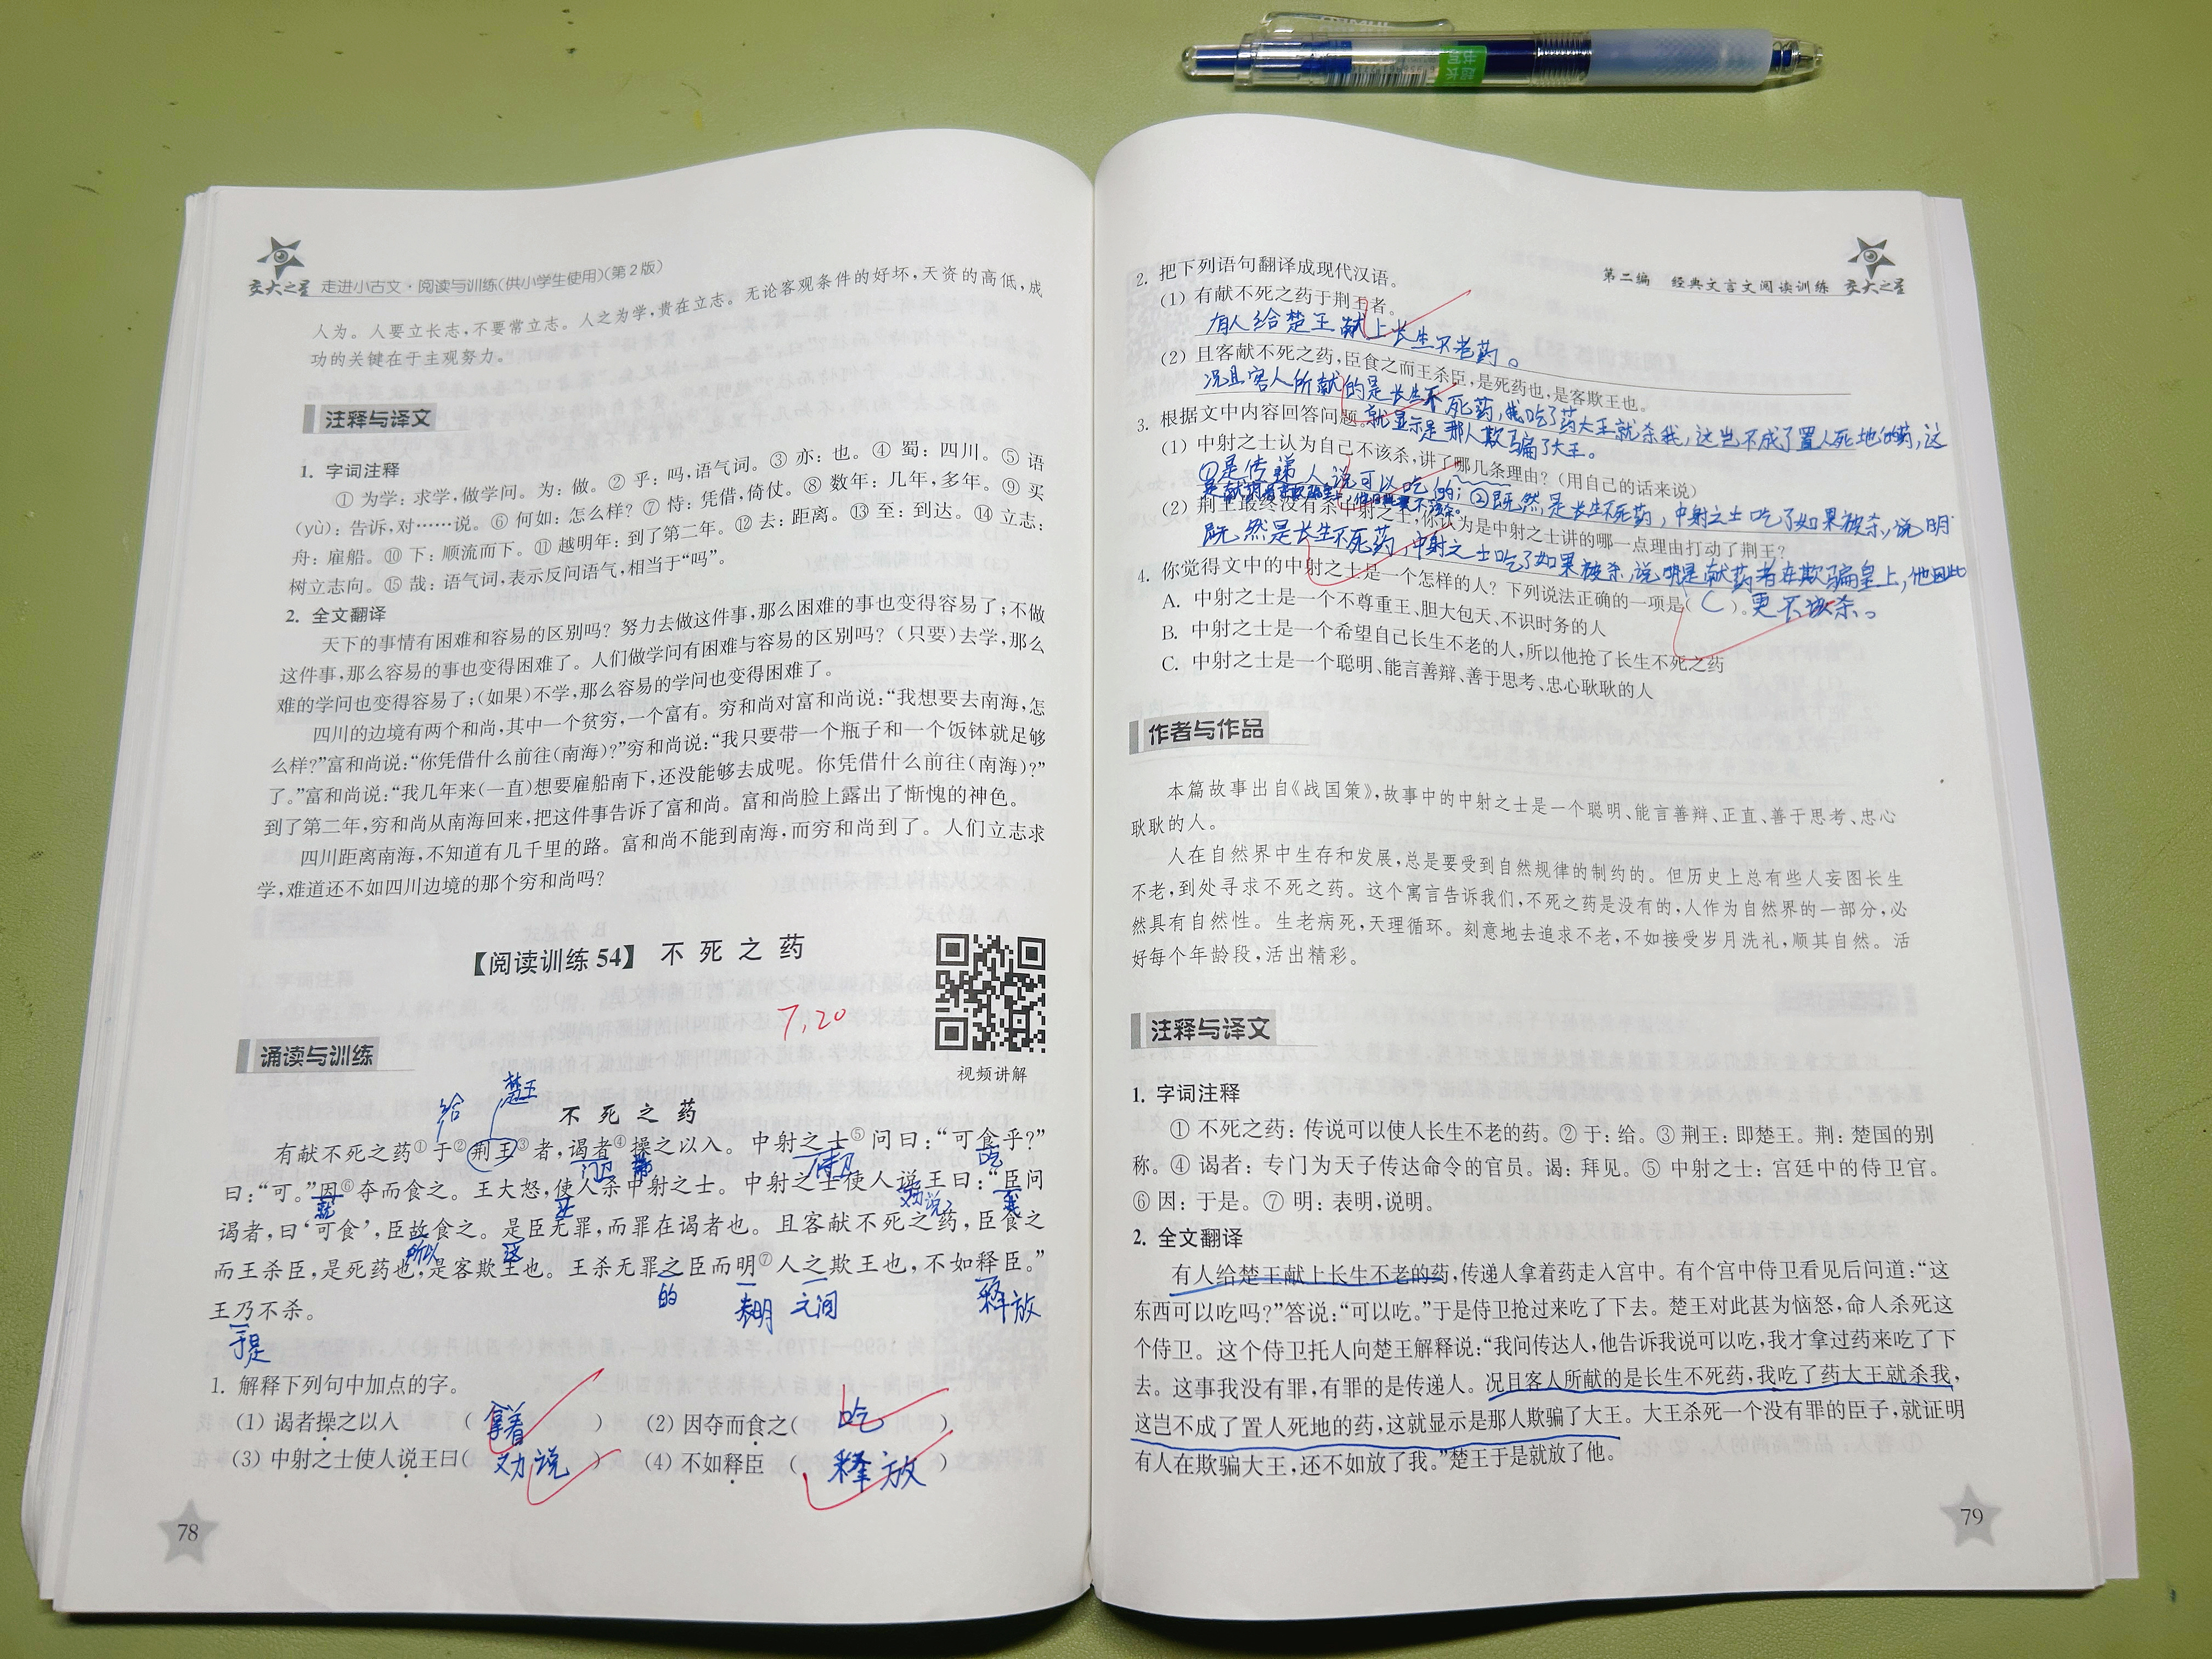 交大之星 走进小古文·阅读与训练(供小学生使用)(第2版)
人为。人要立长志,不要常立志。人之为学,贵在立志。无论客观条件的好坏,天资的高低,成
功的关键在于主观努力。
注释与译文
1. 字词注释
① 为学：求学,做学问。为：做。② 乎：吗,语气词。③ 亦：也。④ 蜀：四川。⑤ 语
(yù)：告诉,对……说。⑥ 何如：怎么样？⑦ 恃：凭借,倚仗。⑧ 数年：几年,多年。⑨ 买
舟：雇船。⑩ 下：顺流而下。⑪ 越明年：到了第二年。⑫ 去：距离。⑬ 至：到达。⑭ 立志：
树立志向。⑮ 哉：语气词,表示反问语气,相当于“吗”。
2. 全文翻译
天下的事情有困难和容易的区别吗？努力去做这件事,那么困难的事也变得容易了；不做
这件事,那么容易的事也变得困难了。人们做学问有困难与容易的区别吗？（只要）去学,那么
难的学问也变得容易了；(如果)不学,那么容易的学问也变得困难了。
四川的边境有两个和尚,其中一个贫穷,一个富有。穷和尚对富和尚说：“我想要去南海,怎
么样？”富和尚说：“你凭借什么前往(南海)？”穷和尚说：“我只要带一个瓶子和一个饭钵就足够
了。”富和尚说：“我几年来(一直)想要雇船南下,还没能够去成呢。你凭借什么前往(南海)？”
到了第二年,穷和尚从南海回来,把这件事告诉了富和尚。富和尚脸上露出了惭愧的神色。
四川距离南海,不知道有几千里的路。富和尚不能到南海,而穷和尚到了。人们立志求
学,难道还不如四川边境的那个穷和尚吗？
【阅读训练 54】 不死之药
7.20
视频讲解
诵读与训练
不死之药
给 楚王
有献不死之药①于②荆王③者,谒者④操之以入。中射之士⑤问曰：“可食乎？”
门卫 侍卫 吃
曰：“可。”因⑥夺而食之。王大怒,使人杀中射之士。中射之士使人说王曰：“臣问
就 劝说 我
谒者,曰‘可食’,臣故食之。是臣无罪,而罪在谒者也。且客献不死之药,臣食之
所以 这
而王杀臣,是死药也,是客欺王也。王杀无罪之臣而明⑦人之欺王也,不如释臣。”
的 表明 之间 释放
王乃不杀。
于是
1. 解释下列句中加点的字。
(1) 谒者操之以入 ( 拿着 ) (2) 因夺而食之( 吃 )
(3) 中射之士使人说王曰( 劝说 ) (4) 不如释臣 ( 释放 )
78
第二编 经典文言文阅读训练 交大之星
2. 把下列语句翻译成现代汉语。
(1) 有献不死之药于荆王者。
有人给楚王献上长生不老药。
(2) 且客献不死之药,臣食之而王杀臣,是死药也,是客欺王也。
况且客人所献的是长生不死药,我吃了药大王就杀我,这岂不成了置人死地的药,这
就显示是那人欺骗了大王。
3. 根据文中内容回答问题。
(1) 中射之士认为自己不该杀,讲了哪几条理由？(用自己的话来说)
①是传递人说可以吃的；②既然是长生不死药,中射之士吃了如果被杀,说明
(2) 荆王最终没有杀中射之士,你认为是中射之士讲的哪一点理由打动了荆王？
既然是长生不死药,中射之士吃了如果被杀,说明是献药者在欺骗皇上,他因此
更不该杀。
4. 你觉得文中的中射之士是一个怎样的人？下列说法正确的一项是( C )。
A. 中射之士是一个不尊重王、胆大包天、不识时务的人
B. 中射之士是一个希望自己长生不老的人,所以他抢了长生不死之药
C. 中射之士是一个聪明、能言善辩、善于思考、忠心耿耿的人
作者与作品
本篇故事出自《战国策》,故事中的中射之士是一个聪明、能言善辩、正直、善于思考、忠心
耿耿的人。
人在自然界中生存和发展,总是要受到自然规律的制约的。但历史上总有些人妄图长生
不老,到处寻求不死之药。这个寓言告诉我们,不死之药是没有的,人作为自然界的一部分,必
然具有自然性。生老病死,天理循环。刻意地去追求不老,不如接受岁月洗礼,顺其自然。活
好每个年龄段,活出精彩。
注释与译文
1. 字词注释
① 不死之药：传说可以使人长生不老的药。② 于：给。③ 荆王：即楚王。荆：楚国的别
称。④ 谒者：专门为天子传达命令的官员。谒：拜见。⑤ 中射之士：宫廷中的侍卫官。
⑥ 因：于是。⑦ 明：表明,说明。
2. 全文翻译
有人给楚王献上长生不老的药,传递人拿着药走入宫中。有个宫中侍卫看见后问道：“这
东西可以吃吗？”答说：“可以吃。”于是侍卫抢过来吃了下去。楚王对此甚为恼怒,命人杀死这
个侍卫。这个侍卫托人向楚王解释说：“我问传达人,他告诉我说可以吃,我才拿过药来吃了下
去。这事我没有罪,有罪的是传递人。况且客人所献的是长生不死药,我吃了药大王就杀我,
这岂不成了置人死地的药,这就显示是那人欺骗了大王。大王杀死一个没有罪的臣子,就证明
有人在欺骗大王,还不如放了我。”楚王于是就放了他。
79